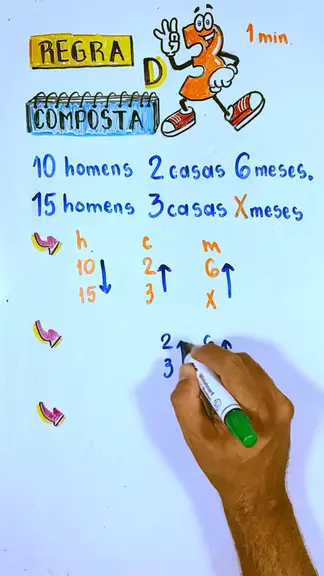 REGRA 1 min.
D 3
COMPOSTA
10 homens 2 casas 6 meses.
15 homens 3 casas X meses
h. c m
10 2 6
15 3 X
2
3